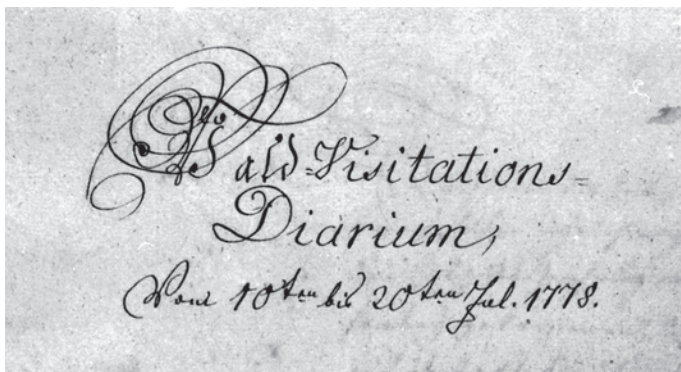 Wald=Visitations=
Diarium,
Vom 10ten bis 20ten Jul. 1778.